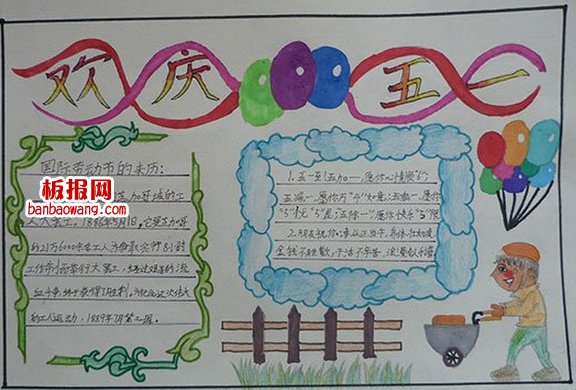 欢庆五一
国际劳动节的来历:
板报网
banbaowang.com
加哥城的工
人大罢工。1886年5月1日,芝加哥
的21万6000余名工人为争取实行8小时
工作制而举行大罢工,
血斗争,终于获得了胜利。为纪念这次伟大
的工人运动,1889年7月第二国
1.五一至!五加一,愿你心情要"6";
五减一,愿你万"4"如意;五乘一,愿你
"5"忧"5"虑;五除一,愿你快乐"5"限
2.朋友祝你:事业正当午,身体壮如虎
金钱不胜数,干活不辛苦,浪漫似